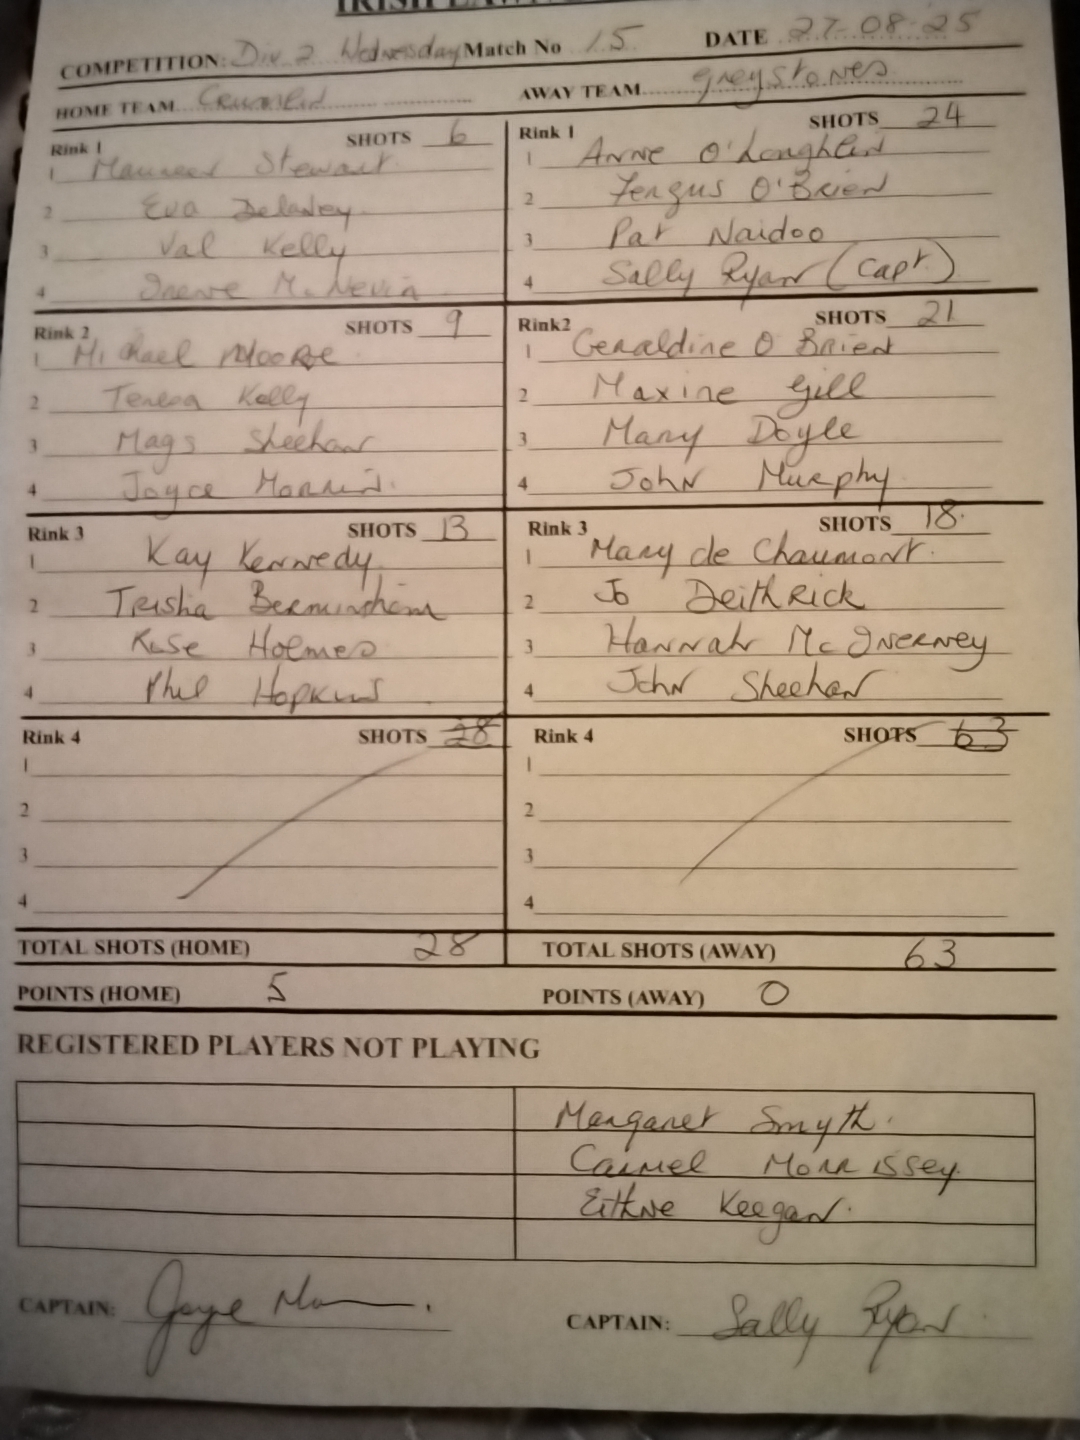 COMPETITION: Div 2 Wednesday Match No 15 DATE 27-08-25
HOME TEAM Crumlin AWAY TEAM greystones
Rink 1 SHOTS 6
1 Maureen Stewart
2 Eva Delaney
3 Val Kelly
4 Irene McNevin
Rink 1 SHOTS 24
1 Anne O'Loughlin
2 Fergus O'Brien
3 Pat Naidoo
4 Sally Ryan (Capt.)
Rink 2 SHOTS 9
1 Michael Moore
2 Teresa Kelly
3 Mags Sheehan
4 Joyce Morrin.
Rink2 SHOTS 21
1 Geraldine O Brien
2 Maxine Gill
3 Mary Doyle
4 John Murphy
Rink 3 SHOTS 13
1 Kay Kennedy
2 Trisha Bermingham
3 Rose Holmes
4 Phil Hopkins
Rink 3 SHOTS 18.
1 Mary de Chaumont.
2 Jo Deithrick
3 Hannah McInerney
4 John Sheehan
Rink 4 SHOTS 28
1
2
3
4
Rink 4 SHOTS 63
1
2
3
4
TOTAL SHOTS (HOME) 28 TOTAL SHOTS (AWAY) 63
POINTS (HOME) 5 POINTS (AWAY) 0
REGISTERED PLAYERS NOT PLAYING
Margaret Smyth.
Carmel Morrissey.
Eithne Keegan.
CAPTAIN: Joyce CAPTAIN: Sally Ryan.